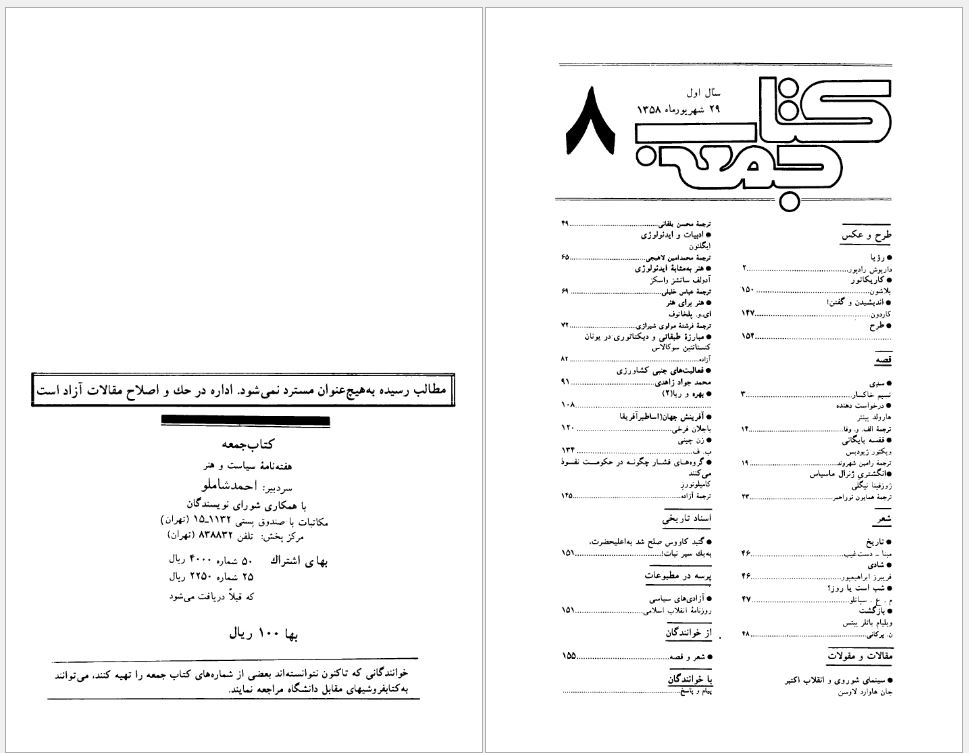 کتاب
جمعه
سال اول
۲۹ شهریورماه ۱۳۵۸
۸
طرح و عکس
● رؤیا
داریوش رادپور......۲
● کاریکاتور
بلاشون......۱۵۰
● اندیشیدن و گفتن!
کاردون......۱۴۷
● طرح
......۱۵۴
قصه
● سدی
نسیم خاکسار......۳
● درخواست دهنده
هارولد پینتر
ترجمهٔ الف. و. وفا......۱۴
● قفسه بایگانی
ویکتور زیودیس
ترجمهٔ رامین شهروند......۱۹
● انگشتری ژنرال ماسیاس
ژوزفینا نیگلی
ترجمهٔ همایون نوراحمر......۲۳
شعر
● تاریخ
مینا - دست‌غیب......۴۶
● شادی
فریبرز ابراهیمپور......۴۶
● شب است یا روز؟
م . ع . سپانلو......۴۷
● بازگشت
ویلیام باتلر ییتس
ن. پرکانی......۴۸
مقالات و مقولات
● سینمای شوروی و انقلاب اکتبر
جان هاوارد لاوسن
ترجمهٔ محسن یلفانی......۴۹
● ادبیات و ایدئولوژی
ایگلتون
ترجمهٔ محمدامین لاهیجی......۶۵
● هنر به‌مثابهٔ ایدئولوژی
آدولف سانشز واسکز
ترجمهٔ عباس خلیلی......۶۹
● هنر برای هنر
ای.و. پلخانوف
ترجمهٔ فرشتهٔ مولوی شیرازی......۷۲
● مبارزهٔ طبقاتی و دیکتاتوری در یونان
کنستانتین سوکالاس
آزاده......۸۲
● فعالیت‌های جنبی کشاورزی
محمد جواد زاهدی......۹۱
● بهره و ربا(۲)
......۱۰۸
● آفرینش جهان(اساطیرآفریقا
باجلان فرخی......۱۲۰
● زن چینی
ب. ف......۱۳۴
● گروه‌های فشار چگونه در حکومت نفوذ
می‌کنند
کامیلوتورز
ترجمهٔ آزاده......۱۲۵
اسناد تاریخی
● گنبد کاووس صلح شد به‌اعلیحضرت،
به‌یك سیر نبات!......۱۵۱
پرسه در مطبوعات
● آزادی‌های سیاسی
روزنامهٔ انقلاب اسلامی......۱۵۱
از خوانندگان
● شعر و قصه......۱۵۵
با خوانندگان
پیام و پاسخ......
مطالب رسیده به‌هیچ‌عنوان مسترد نمی‌شود. اداره در حك و اصلاح مقالات آزاد است
کتاب‌جمعه
هفته‌نامهٔ سیاست و هنر
سردبیر: احمدشاملو
با همکاری شورای نویسندگان
مکاتبات با صندوق پستی ۱۱۳۲-۱۵ (تهران)
مرکز پخش: تلفن ۸۳۸۸۳۲ (تهران)
بهای اشتراك ۵۰ شماره ۴۰۰۰ ریال
۲۵ شماره ۲۲۵۰ ریال
که قبلاً دریافت می‌شود
بها ۱۰۰ ریال
خوانندگانی که تاکنون نتوانسته‌اند بعضی از شماره‌های کتاب جمعه را تهیه کنند، می‌توانند
به‌کتابفروشیهای مقابل دانشگاه مراجعه نمایند.